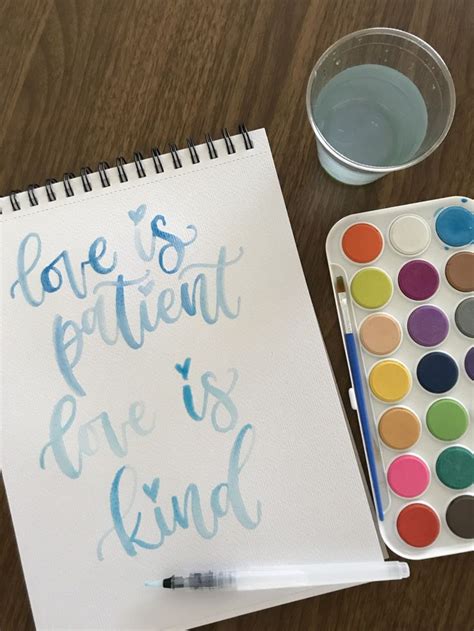 love is
patient
love is
kind